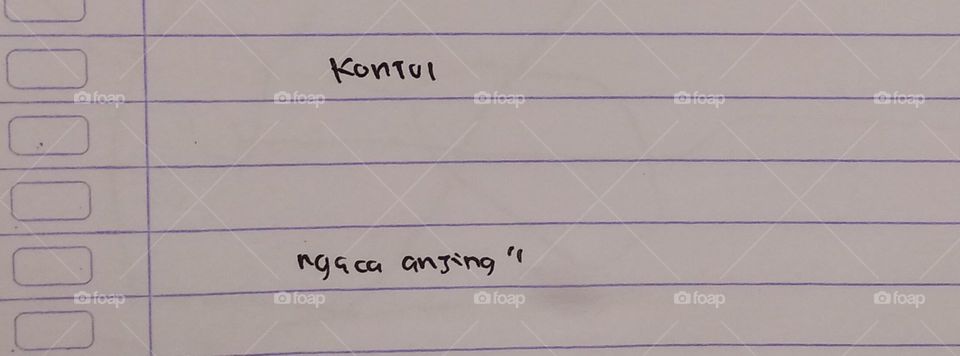 KonTUl
ngaca anjing "
foap foap foap foap foap
foap foap foap foap foap